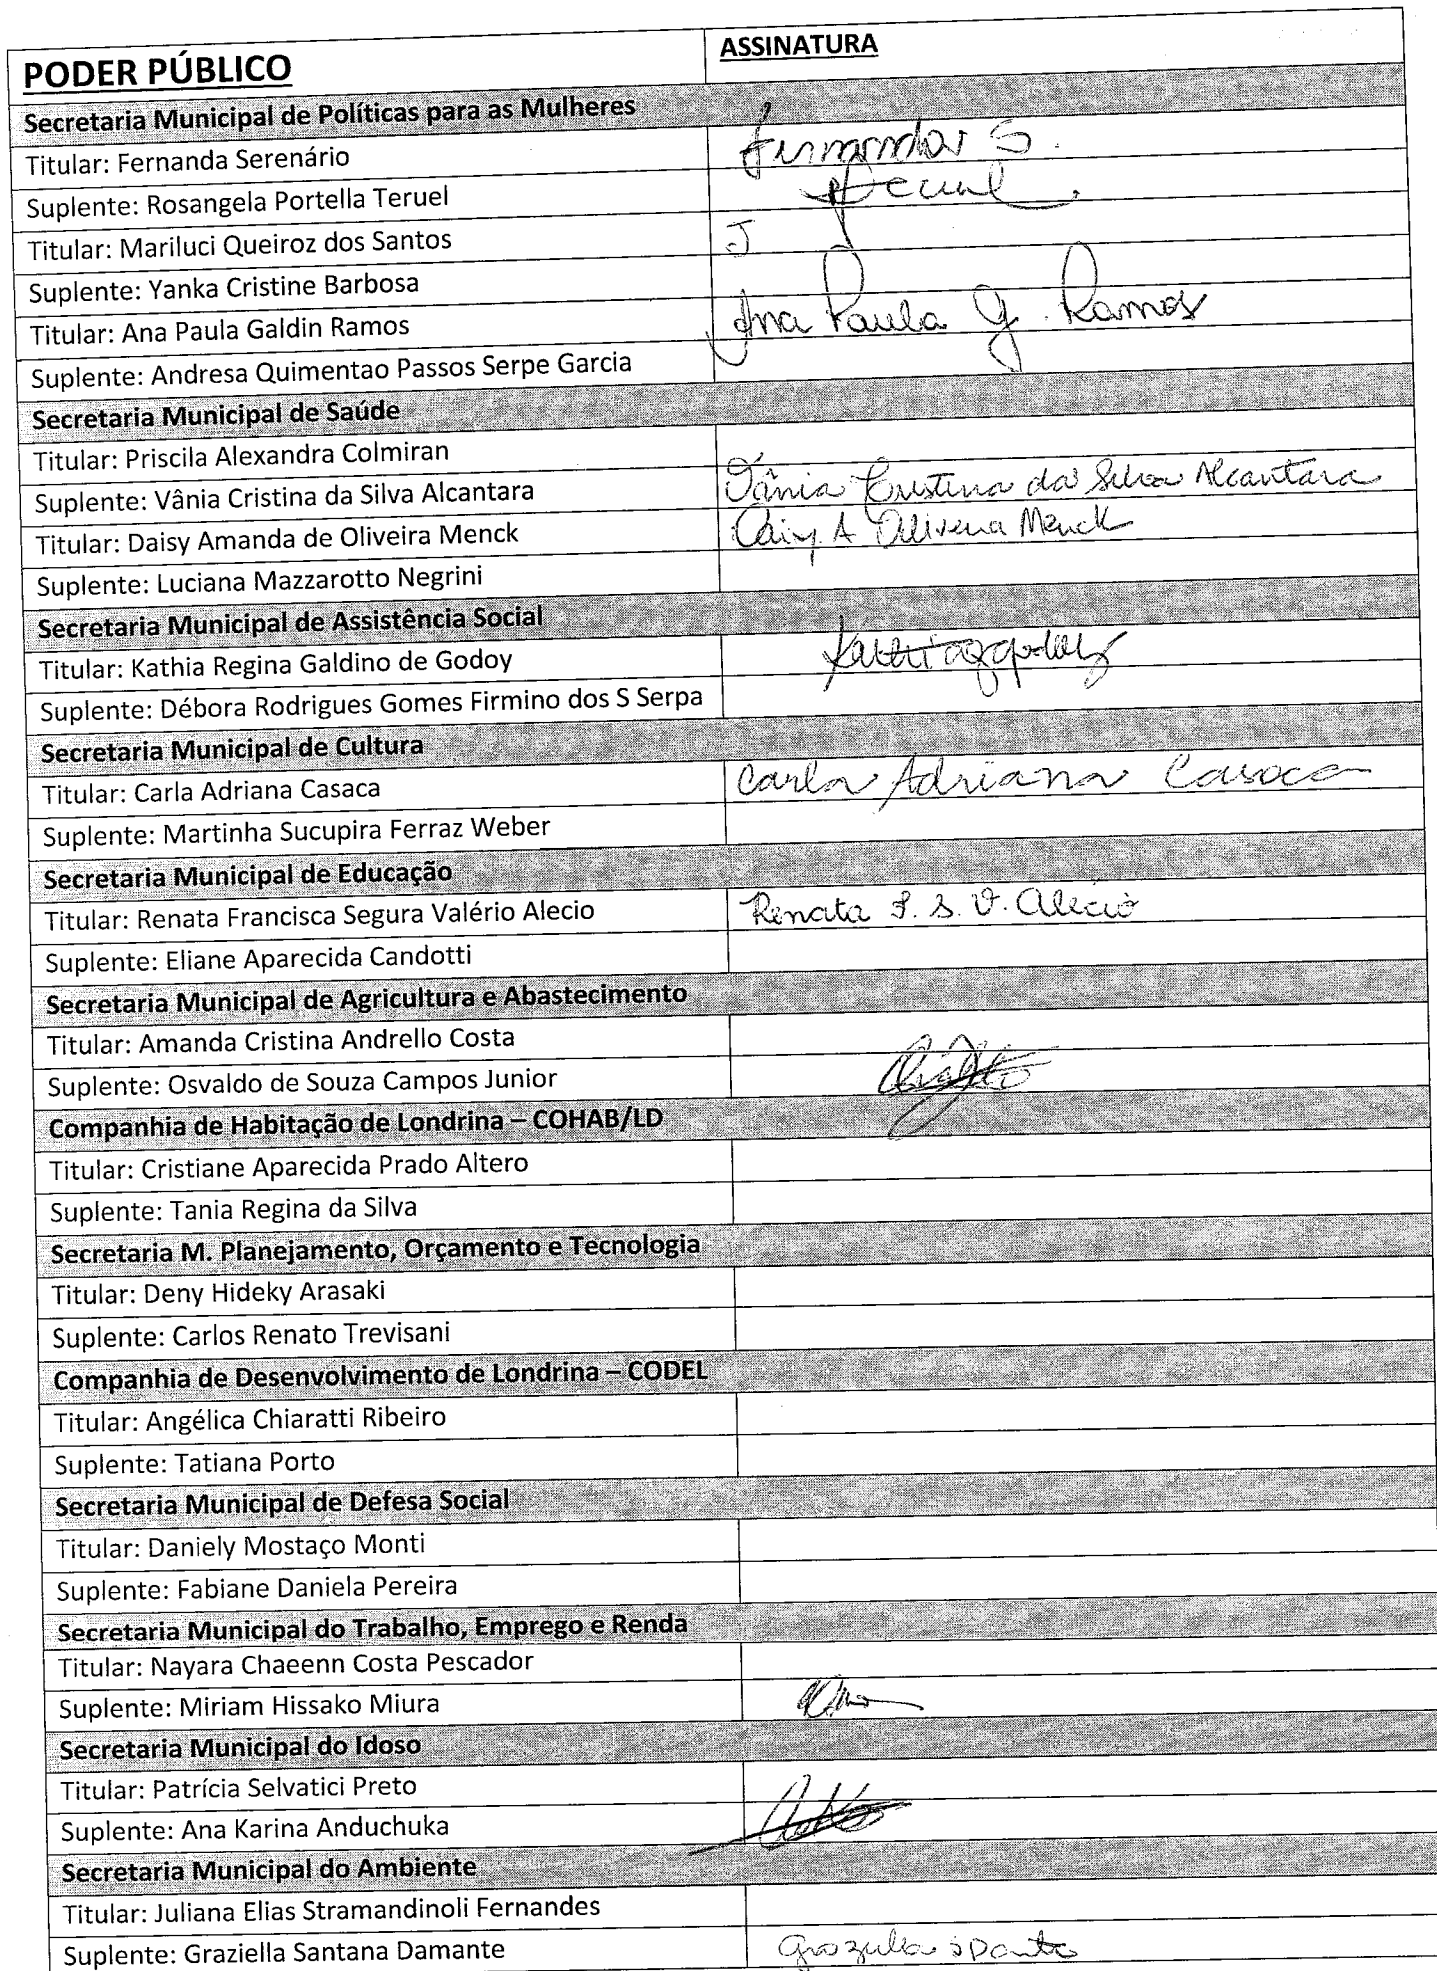 PODER PÚBLICO ASSINATURA
Secretaria Municipal de Políticas para as Mulheres
Titular: Fernanda Serenário Fernanda S.
Suplente: Rosangela Portella Teruel
Titular: Mariluci Queiroz dos Santos J
Suplente: Yanka Cristine Barbosa
Titular: Ana Paula Galdin Ramos Ana Paula G. Ramos
Suplente: Andresa Quimentao Passos Serpe Garcia
Secretaria Municipal de Saúde
Titular: Priscila Alexandra Colmiran
Suplente: Vânia Cristina da Silva Alcantara Vânia Cristina da Silva Alcantara
Titular: Daisy Amanda de Oliveira Menck Daisy A Oliveira Menck
Suplente: Luciana Mazzarotto Negrini
Secretaria Municipal de Assistência Social
Titular: Kathia Regina Galdino de Godoy
Suplente: Débora Rodrigues Gomes Firmino dos S Serpa
Secretaria Municipal de Cultura
Titular: Carla Adriana Casaca Carla Adriana Casaca
Suplente: Martinha Sucupira Ferraz Weber
Secretaria Municipal de Educação
Titular: Renata Francisca Segura Valério Alecio Renata F. S. V. Alecio
Suplente: Eliane Aparecida Candotti
Secretaria Municipal de Agricultura e Abastecimento
Titular: Amanda Cristina Andrello Costa
Suplente: Osvaldo de Souza Campos Junior
Companhia de Habitação de Londrina – COHAB/LD
Titular: Cristiane Aparecida Prado Altero
Suplente: Tania Regina da Silva
Secretaria M. Planejamento, Orçamento e Tecnologia
Titular: Deny Hideky Arasaki
Suplente: Carlos Renato Trevisani
Companhia de Desenvolvimento de Londrina – CODEL
Titular: Angélica Chiaratti Ribeiro
Suplente: Tatiana Porto
Secretaria Municipal de Defesa Social
Titular: Daniely Mostaço Monti
Suplente: Fabiane Daniela Pereira
Secretaria Municipal do Trabalho, Emprego e Renda
Titular: Nayara Chaeenn Costa Pescador
Suplente: Miriam Hissako Miura
Secretaria Municipal do Idoso
Titular: Patrícia Selvatici Preto
Suplente: Ana Karina Anduchuka
Secretaria Municipal do Ambiente
Titular: Juliana Elias Stramandinoli Fernandes
Suplente: Graziella Santana Damante